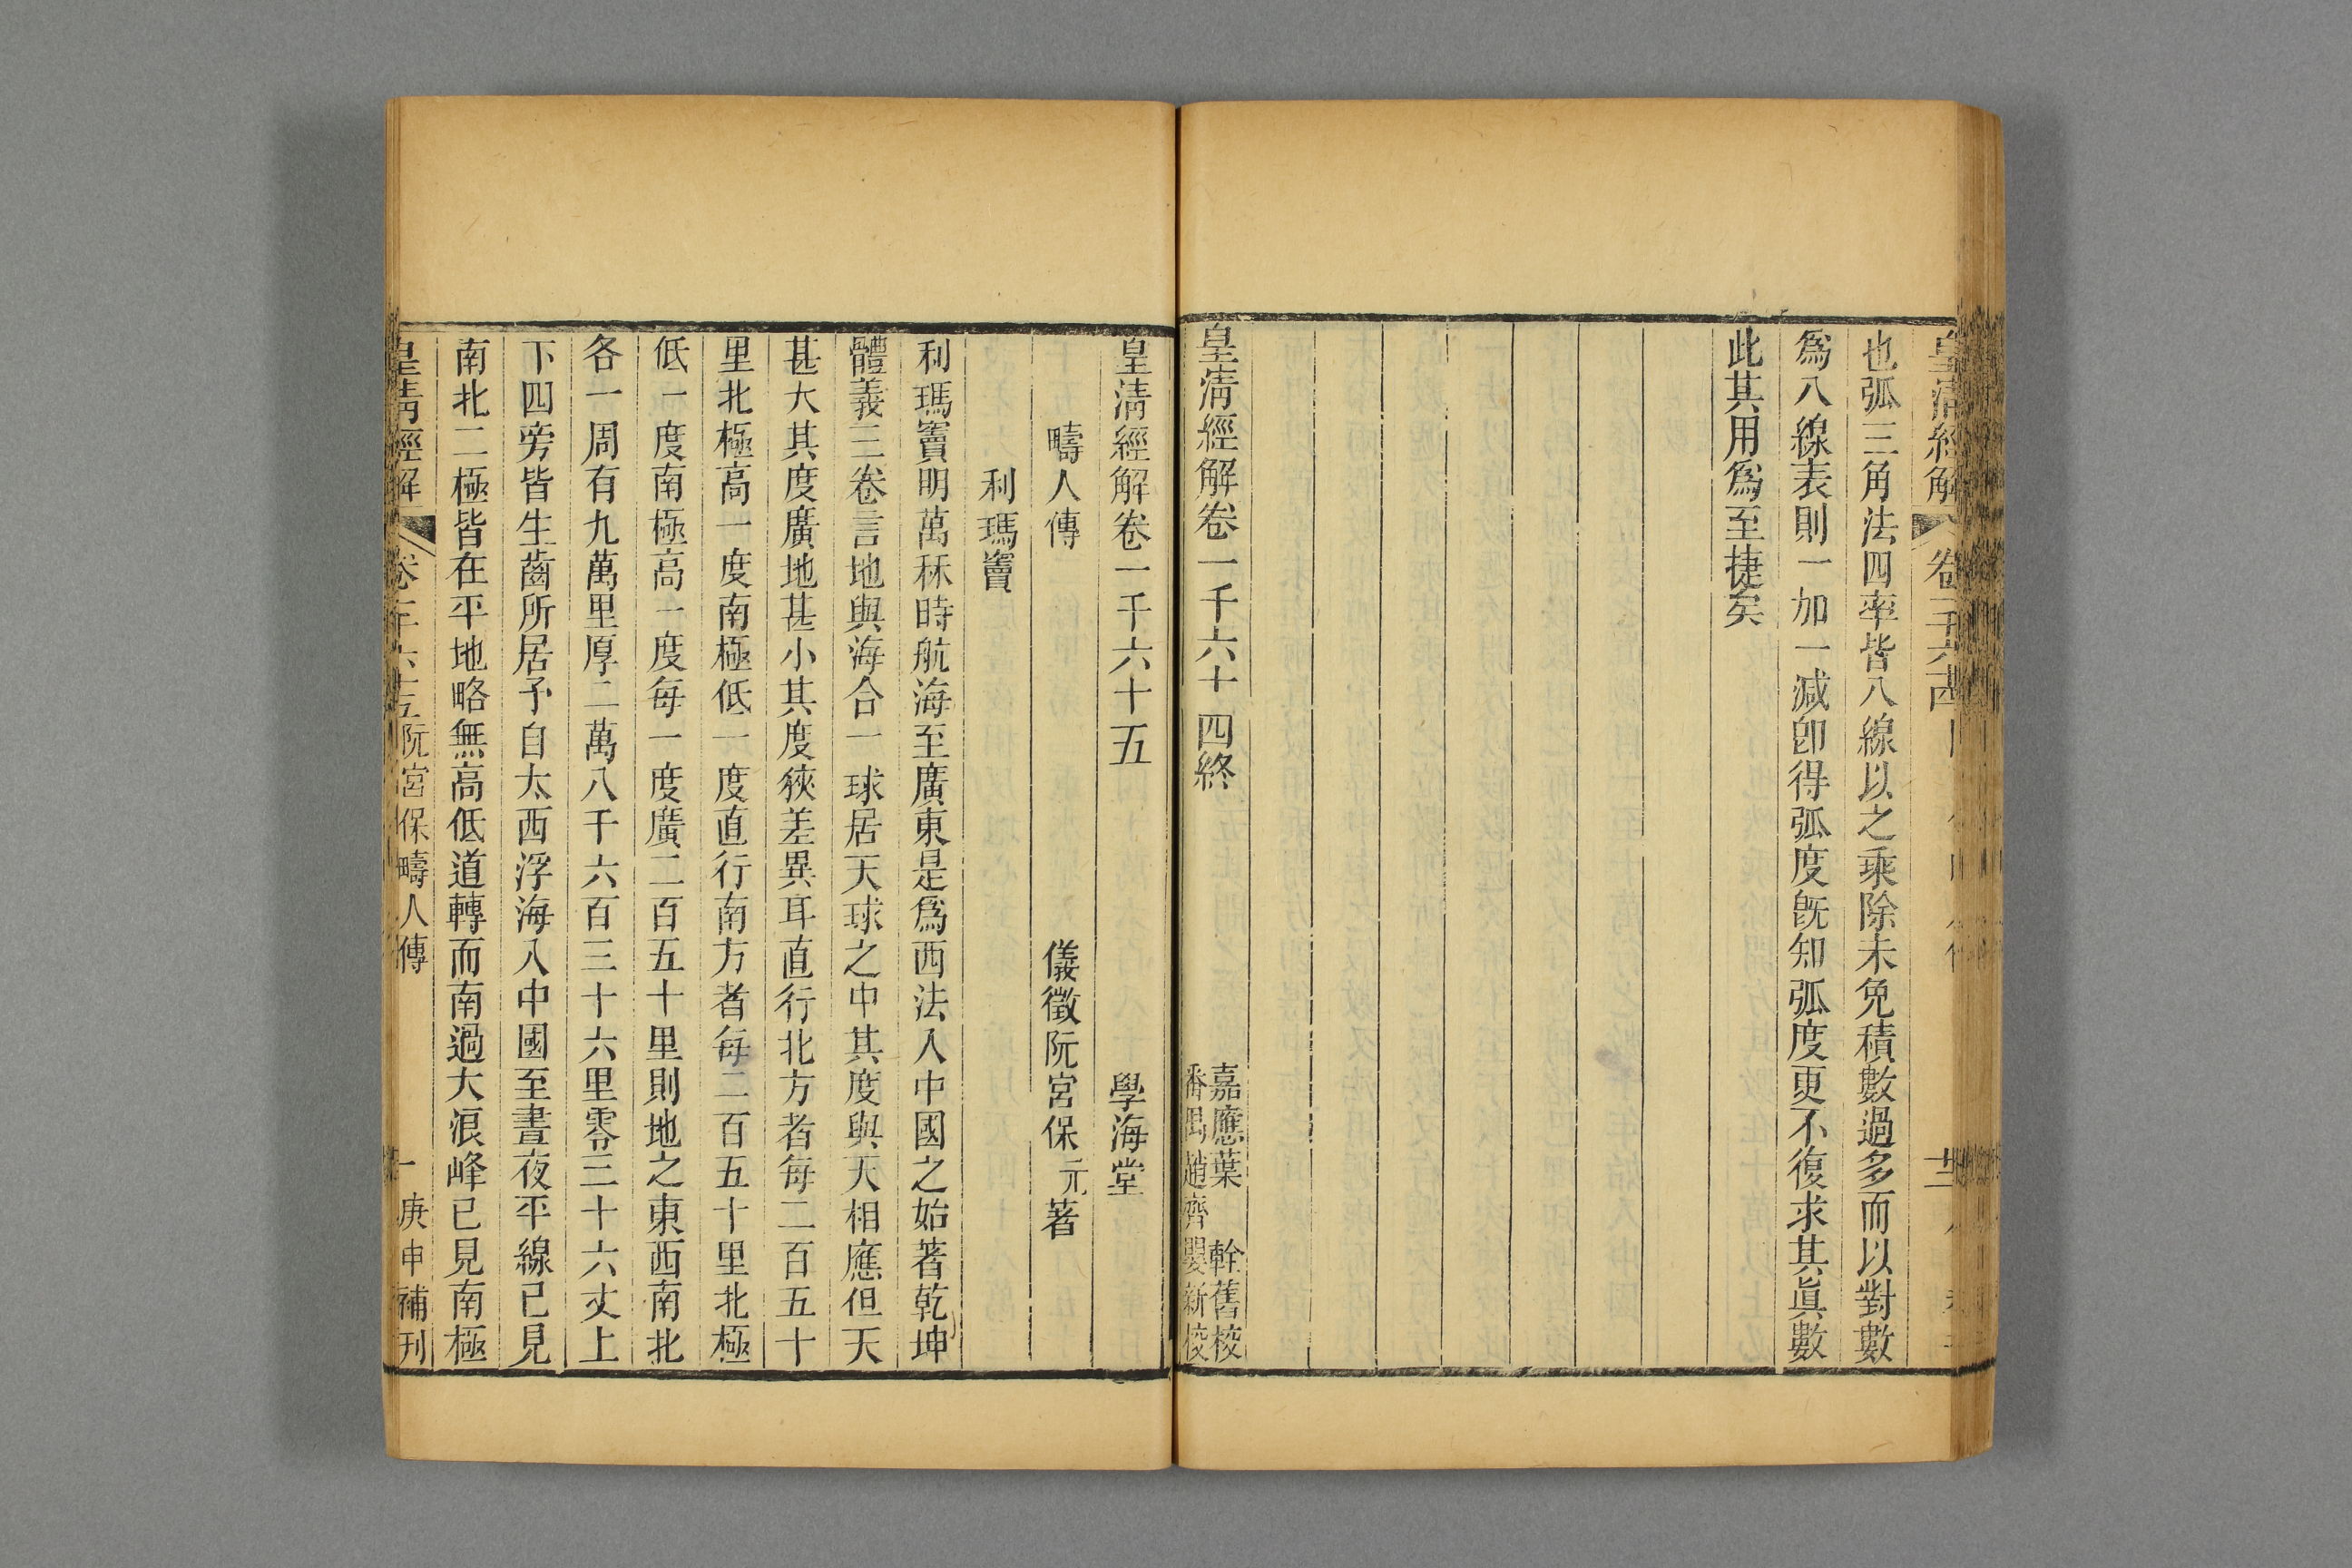 皇清經解
卷一千六十四
也弧三角法四率皆八線以之乘除未免積數過多而以對數
爲八線表則一加一減卽得弧度旣知弧度更不復求其眞數
此其用爲至捷矣
皇清經解卷一千六十四終
嘉應葉軡舊校
番禺趙齊嬰新校
皇清經解卷一千六十五
學海堂
疇人傳
儀徵阮宮保元著
利瑪竇
利瑪竇明萬秝時航海至廣東是爲西法入中國之始著乾坤
體義三卷言地與海合一球居天球之中其度與天相應但天
甚大其度廣地甚小其度狹差異耳直行北方者每二百五十
里北極高一度南極低一度直行南方者每二百五十里北極
低一度南極高一度每一度廣二百五十里則地之東西南北
各一周有九萬里厚二萬八千六百三十六里零三十六丈上
下四旁皆生齒所居予自太西浮海入中國至晝夜平線已見
南北二極皆在平地略無高低道轉而南過大浪峰已見南極
皇清經解
卷一千六十五阮宮保疇人傳
一
庚申補刊